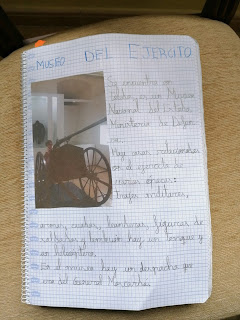 MUSEO DEL EJERCITO
Se encuentra en
Nacional del
Ministerio de Defen
sa.
Hay cosas relacionadas
con el ejército de
varias épocas:
trajes militares,
armas, cuadros, banderas, figuras de
soldados y también hay un tanque y
un helicóptero.
En el museo hay un despacho que
era del General Moscardó.